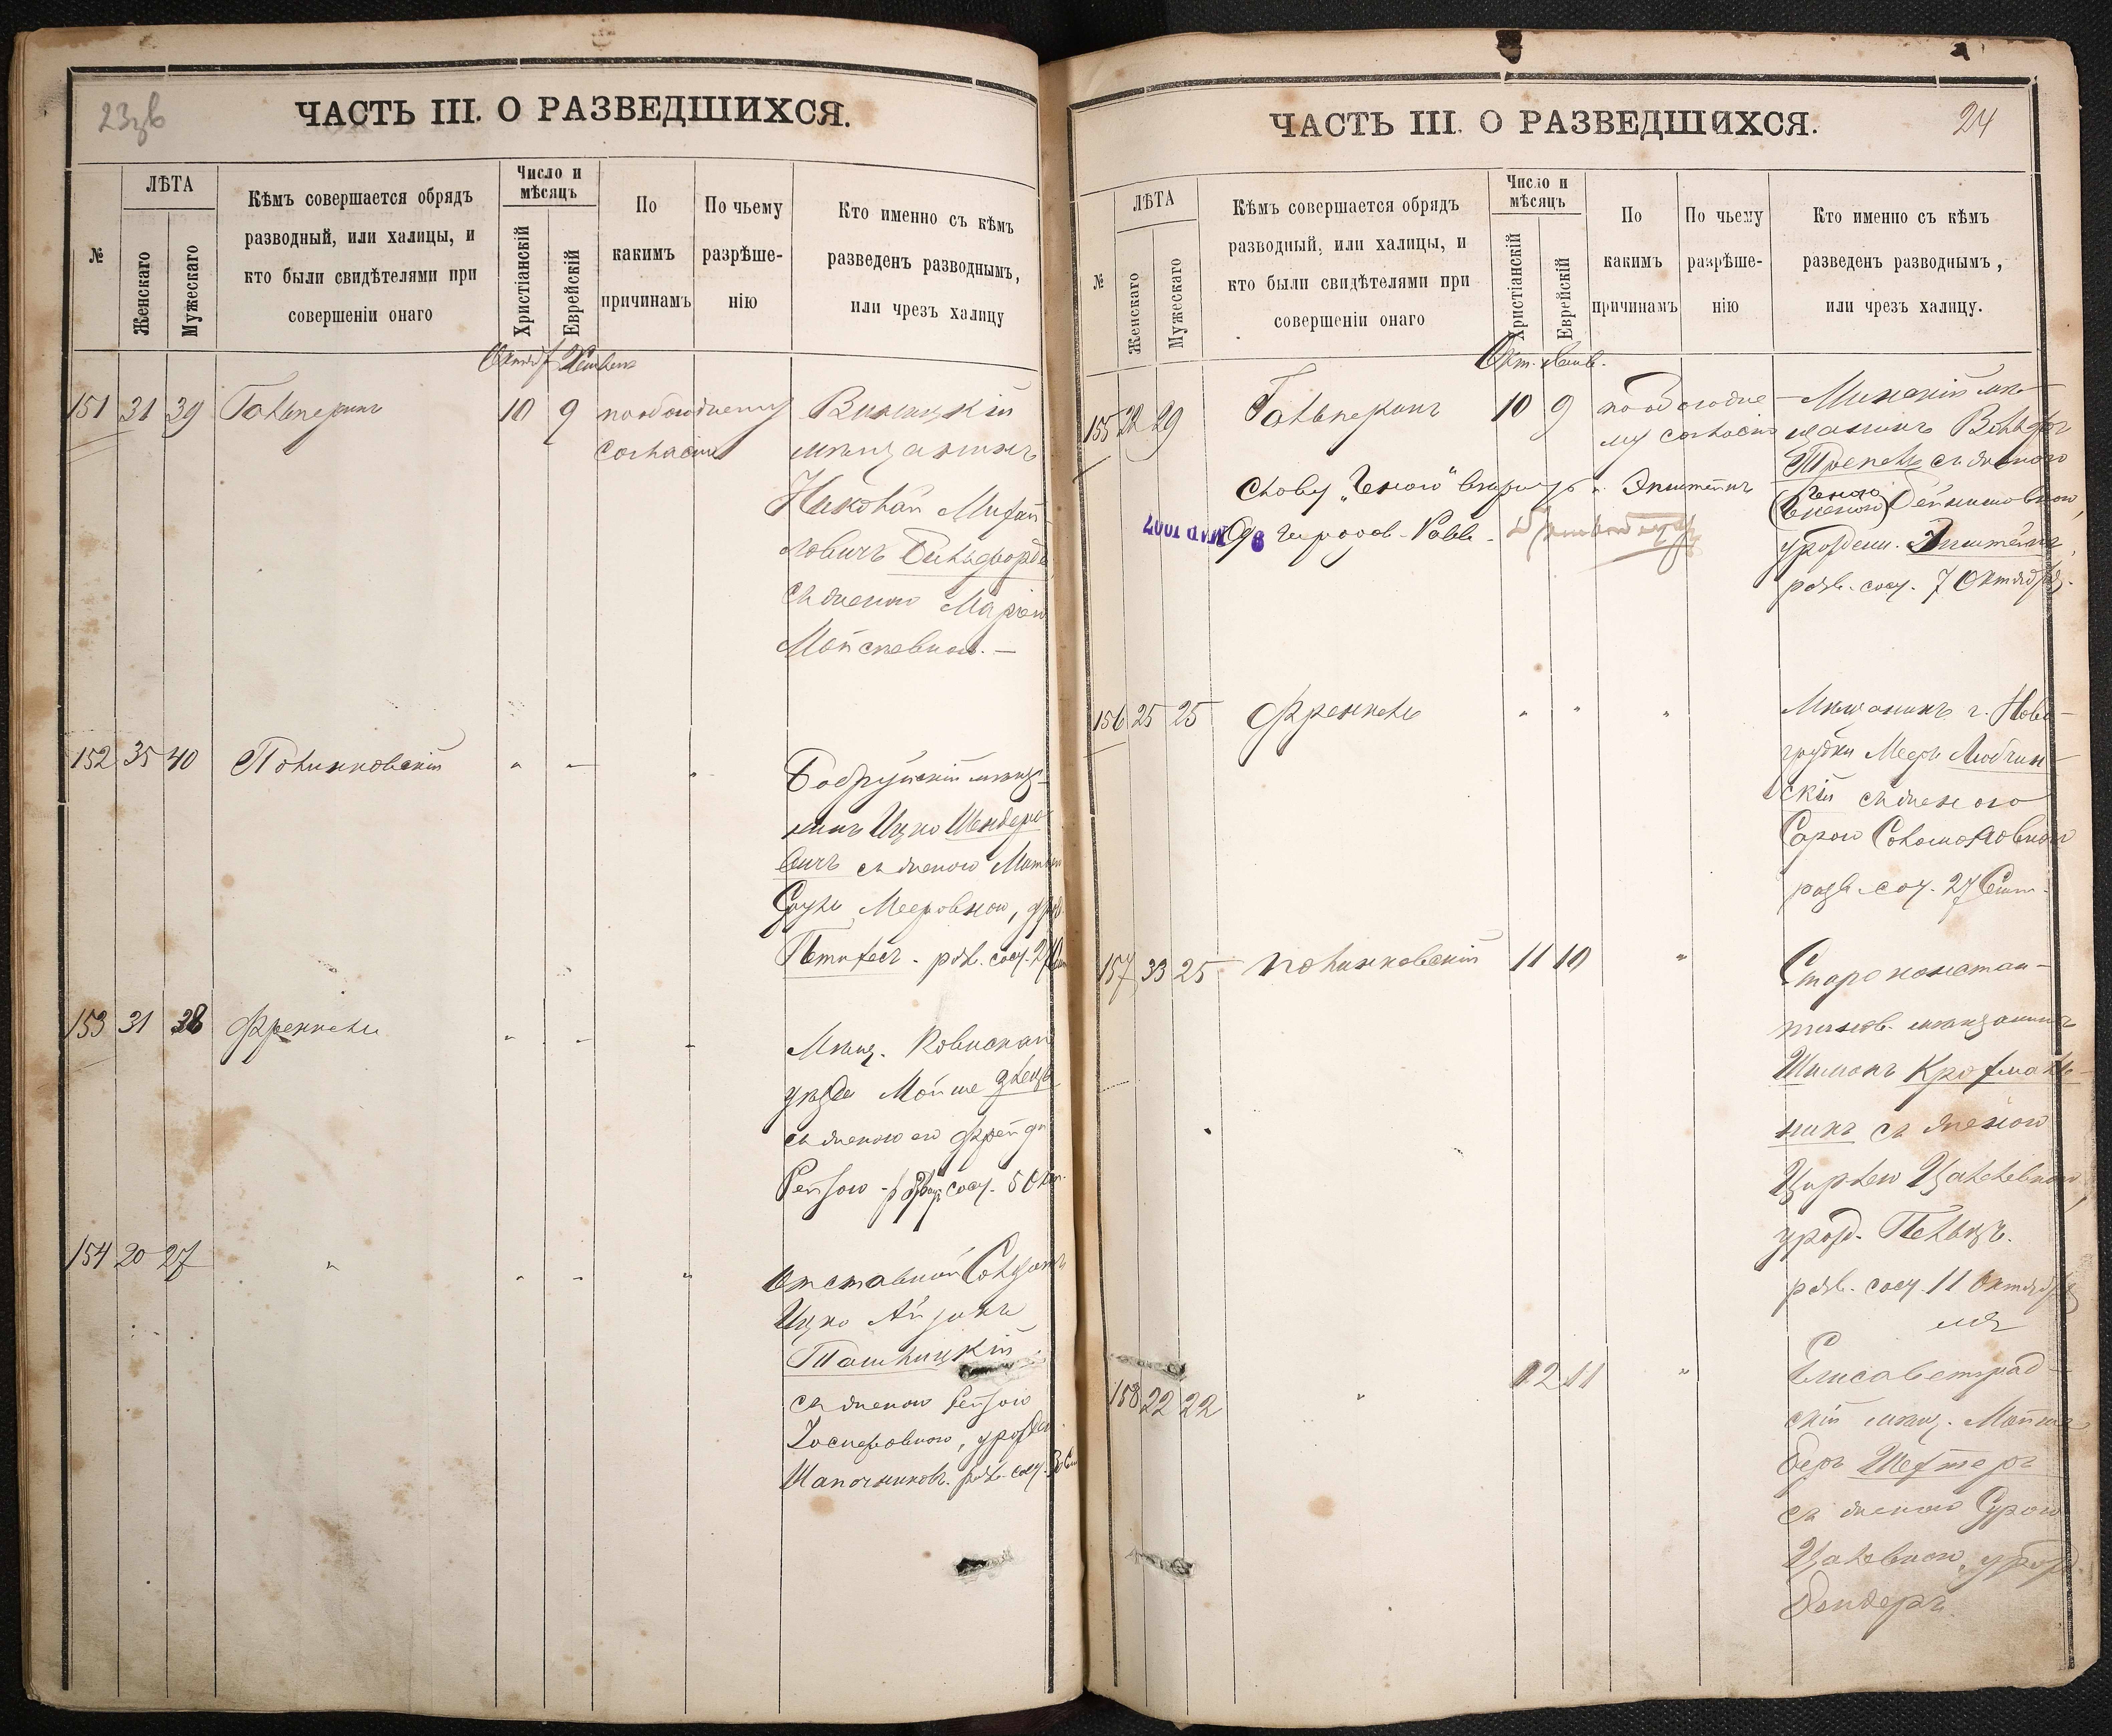 ЧАСТЬ III. О РАЗВЕДШИХСЯ.
№
ЛѢТА
Женскаго
Мужескаго
Кѣмъ совершается обрядъ
разводный, или халицы, и
кто были свидѣтелями при
совершеніи онаго
Число и
мѣсяцъ
Христіанскій
Еврейскій
По
какимъ
причинамъ
По чьему
разрѣше-
нію
Кто именно съ кѣмъ
разведенъ разводнымъ,
или чрезъ халицу
151 31 39 Гальперинъ 10 9 по обоюдному
согласію
мѣщанинъ
Николай Михай-
ловичъ
съ женою Маріею
Мойсеевною. —
152 35 40 Полинковскій " — "
Бобруйскій мѣща-
нинъ Ицко Шендеро
вичъ съ женою
Мееровною,
153 31 38 Френкель " - -
Мѣщ. Ковенскаго
уѣзда Мойше
съ женою его Фрейдой
Рейзою - сост. 5 Окт.
154 20 27 " " - "
Отставной Солдатъ
Ицко Айзикъ
Ташлицкій
съ женою Рейзою
Іосифовною, урожден.
Шапочниковъ. разв. сост.
ЧАСТЬ III. О РАЗВЕДШИХСЯ.
24
№
ЛѢТА
Женскаго
Мужескаго
Кѣмъ совершается обрядъ
разводный, или халицы, и
кто были свидѣтелями при
совершеніи онаго
Число и
мѣсяцъ
Христіанскій
Еврейскій
По
какимъ
причинамъ
По чьему
разрѣше-
нію
Кто именно съ кѣмъ
разведенъ разводнымъ,
или чрезъ халицу.
Окт.
155 22 29 Гальперинъ 10 9 по обоюдно-
му согласію
Минскій мѣ-
щанинъ Вольфъ
съ женою
урожден. Эпштейнъ,
разв. сост. 7 Октября.
Слову „Геною"
Эпштейнъ
Од. городов. Равв.
156 25 25 Френкель " " "
Мѣщанинъ г. Ново-
грудки Мееръ Любчин-
скій съ женою
Сарою Соломоновной
разв. сост. 27 Сент.
157 33 25 Полинковскій 11 10 "
Староконстан-
тинов. мѣщанинъ
Шимонъ Крохмаль-
никъ съ женою
Цирлею Цалевною,
урожд. Пельцъ.
разв. сост. 11 Октября
158 22 22 " 12 11 "
Елисаветград-
скій мѣщ. Мойше
Беръ Шехтеръ
съ женою Сурою
Цалевною, урожд.
Бендеръ.